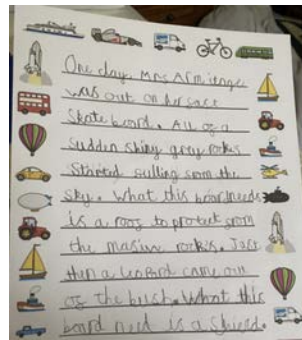 One day Mrs Armitage
was out on her fast
Skate board. All of a
sudden shiny grey rocks
Started fulling from the
sky. What this board needs
is a roof to protect from
the masive rocks. Just
then a leopard came out
of the bush. What this
board need is a shield.